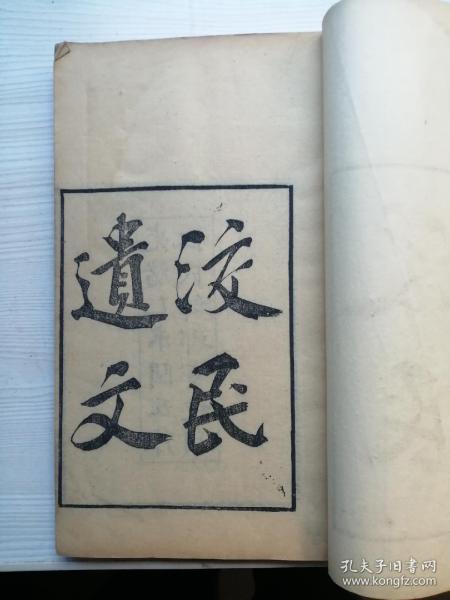 汥民
遺文
孔夫子旧书网
www.kongfz.com